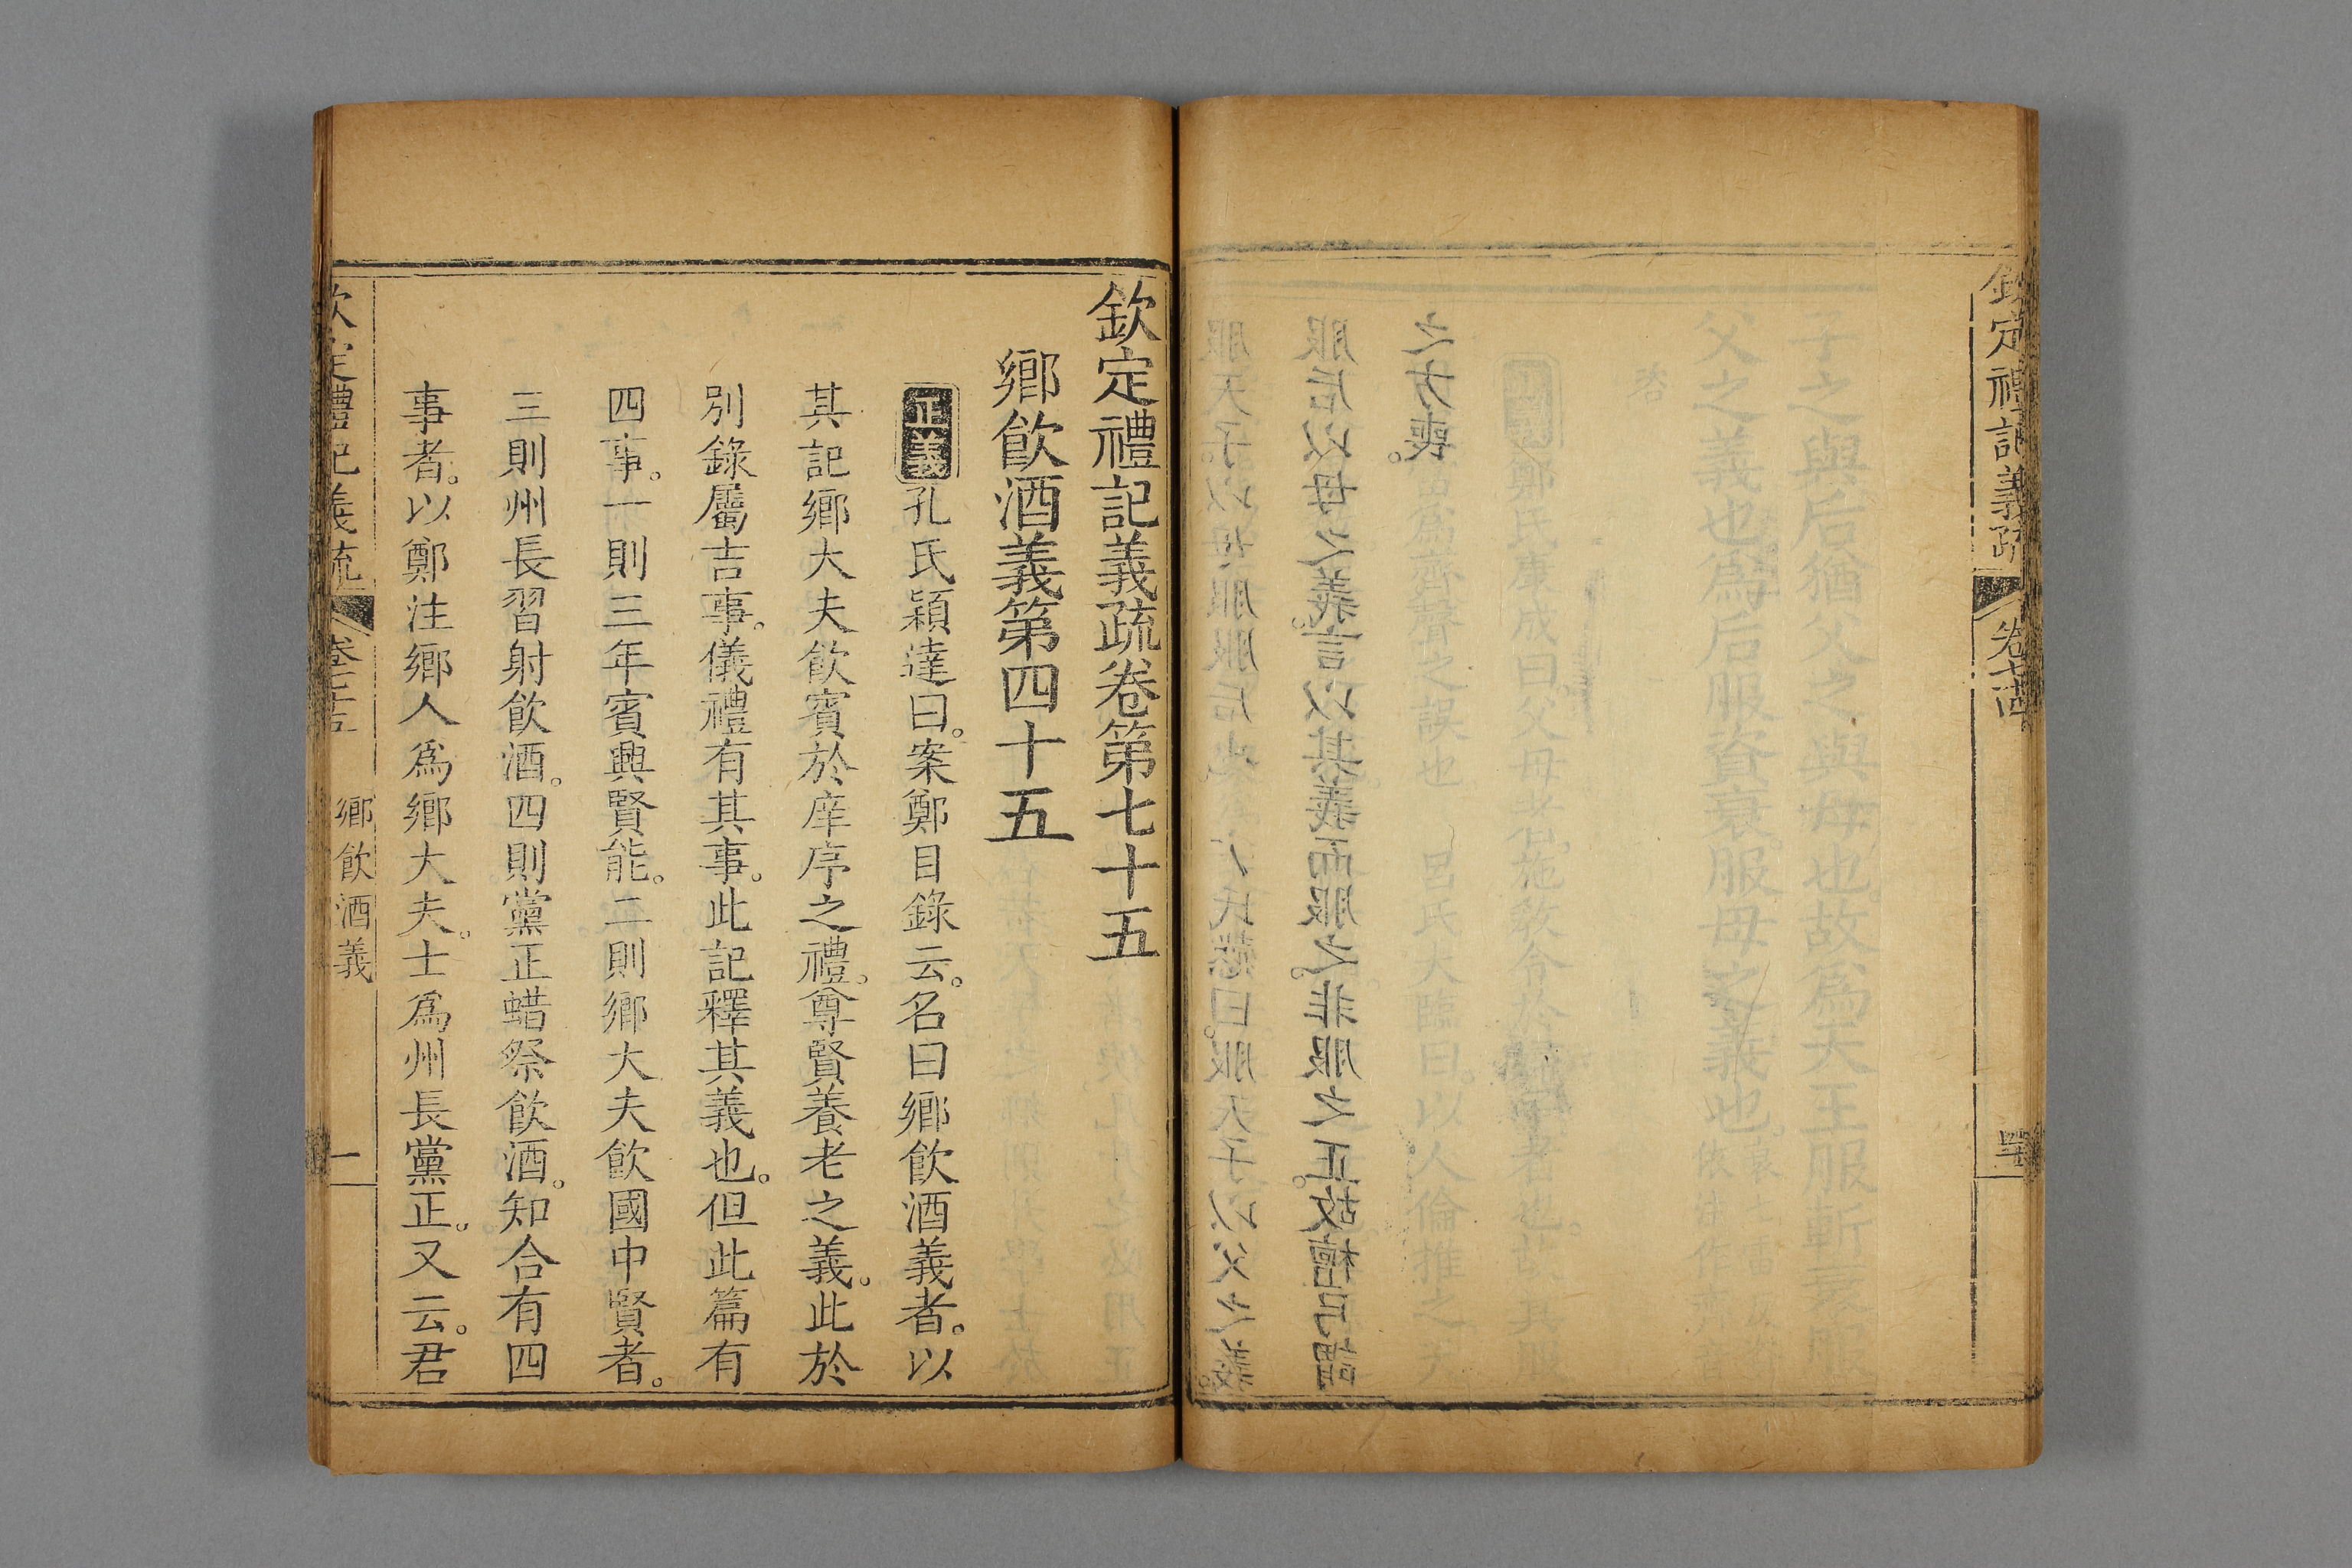 欽定禮記義疏 卷七十四
子之與后猶父之與母也。故爲天王服斬衰服
父之義也爲后服資衰服母之義也。
服后以母之義。言以其義而服之。非服之正。故檀弓謂
之方喪。
欽定禮記義疏卷第七十五
鄉飲酒義第四十五
正義孔氏穎達曰。案鄭目錄云。名曰鄉飲酒義者。以
其記鄉大夫飲賓於庠序之禮。尊賢養老之義。此於
別錄屬吉事。儀禮有其事。此記釋其義也。但此篇有
四事。一則三年賓興賢能。二則鄉大夫飲國中賢者。
三則州長習射飲酒。四則黨正蜡祭飲酒。知合有四
事者。以鄭注鄉人爲鄉大夫。士爲州長黨正。又云。君
欽定禮記義疏 卷七十五 鄉飲酒義 一